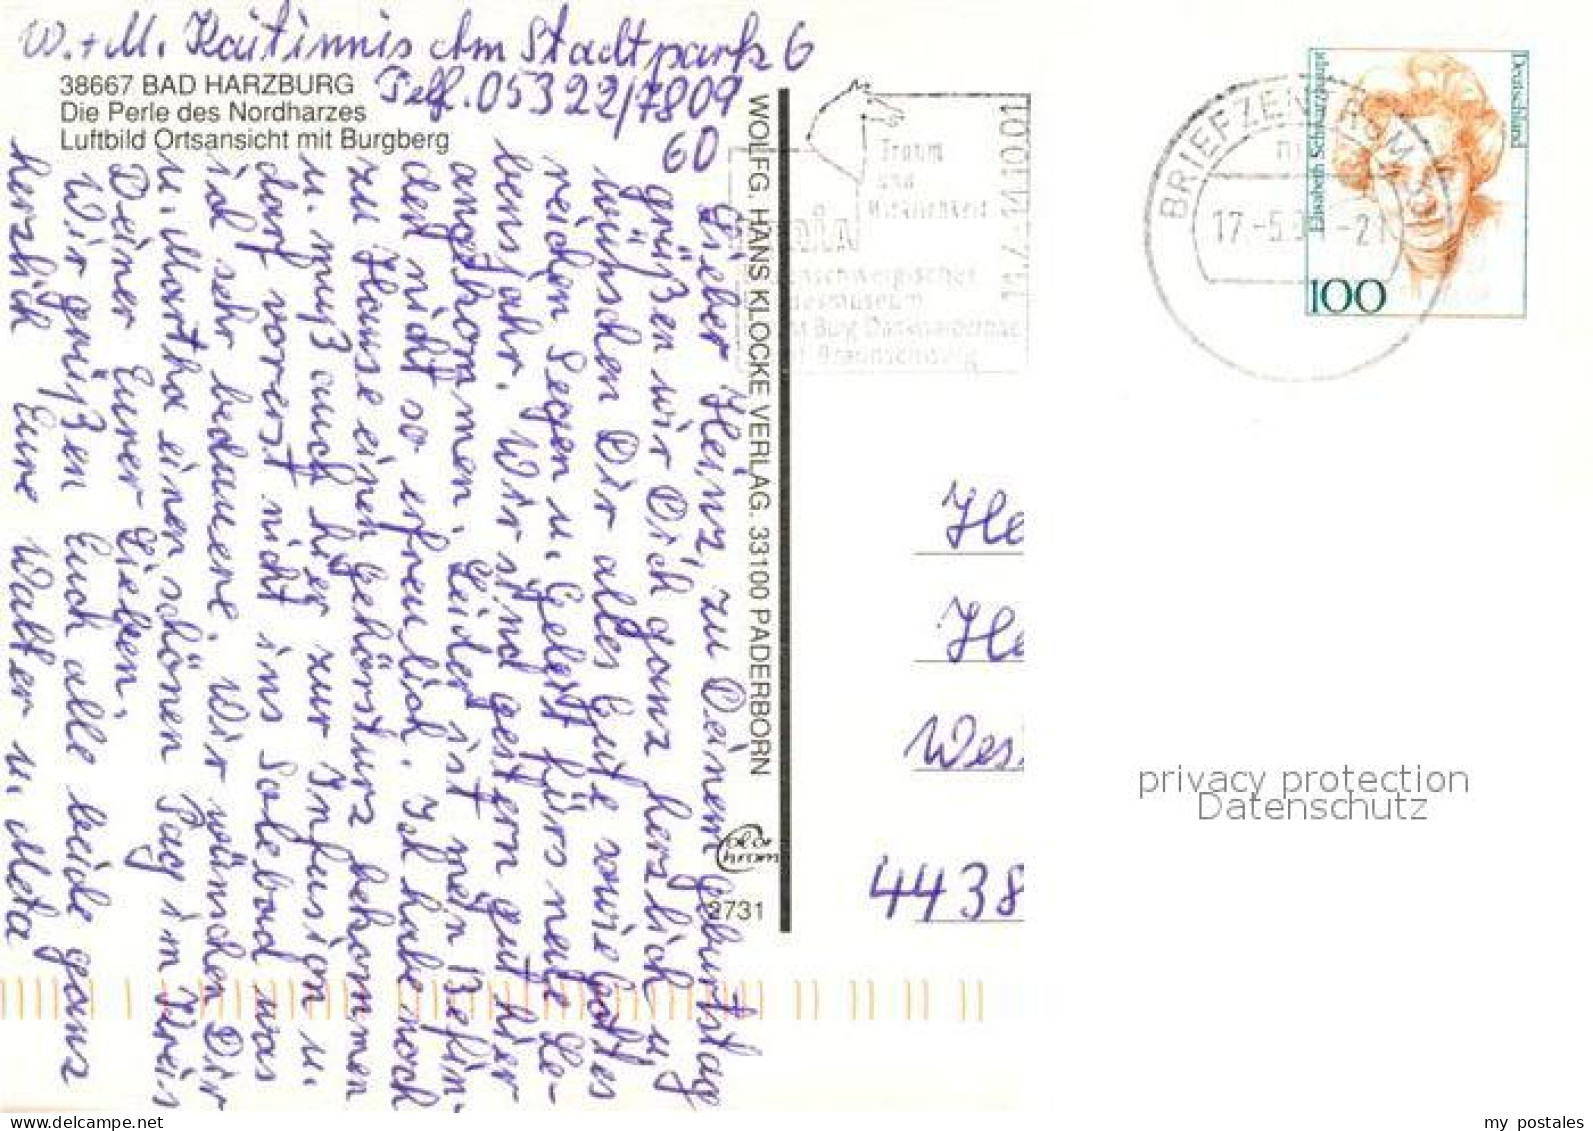 W. + M. Kaitinnis Am Stadtpark 6
38667 BAD HARZBURG
Telf. 05322/7809
60
Die Perle des Nordharzes
Luftbild Ortsansicht mit Burgberg
Lieber Heinz, zu Deinem Geburtstag
grüßen wir Dich ganz herzlich u.
wünschen Dir alles Gute sowie Gottes
reichen Segen u. Geleit fürs neue Le-
bensjahr. Wir sind gestern gut hier
angekommen. Leider ist mein Befin-
den nicht so erfreulich. Ich habe noch
zu Hause einen Gehörsturz bekommen
u. muß auch hier zur Infusion u.
darf vorerst nicht ins Solebad was
ich sehr bedauere. Wir wünschen Dir
u. Martha einen schönen Tag im Kreis
Deiner Eurer Lieben.
Wir grüßen Euch alle beide ganz
herzlich Eure Walter u. Meta
WOLFG. HANS KLOCKE VERLAG. 33100 PADERBORN
color
chrom
2731
Traum
und
Wirklichkeit
Landesmuseum
Burg Dankwarderode
Braunschweig
14.7.-14.10.01
BRIEFZENTRUM 38
17.-5. -21
Deutschland
Elisabeth Schwarzhaupt
100
He
He
Wes
4438
privacy protection
Datenschutz
my postales